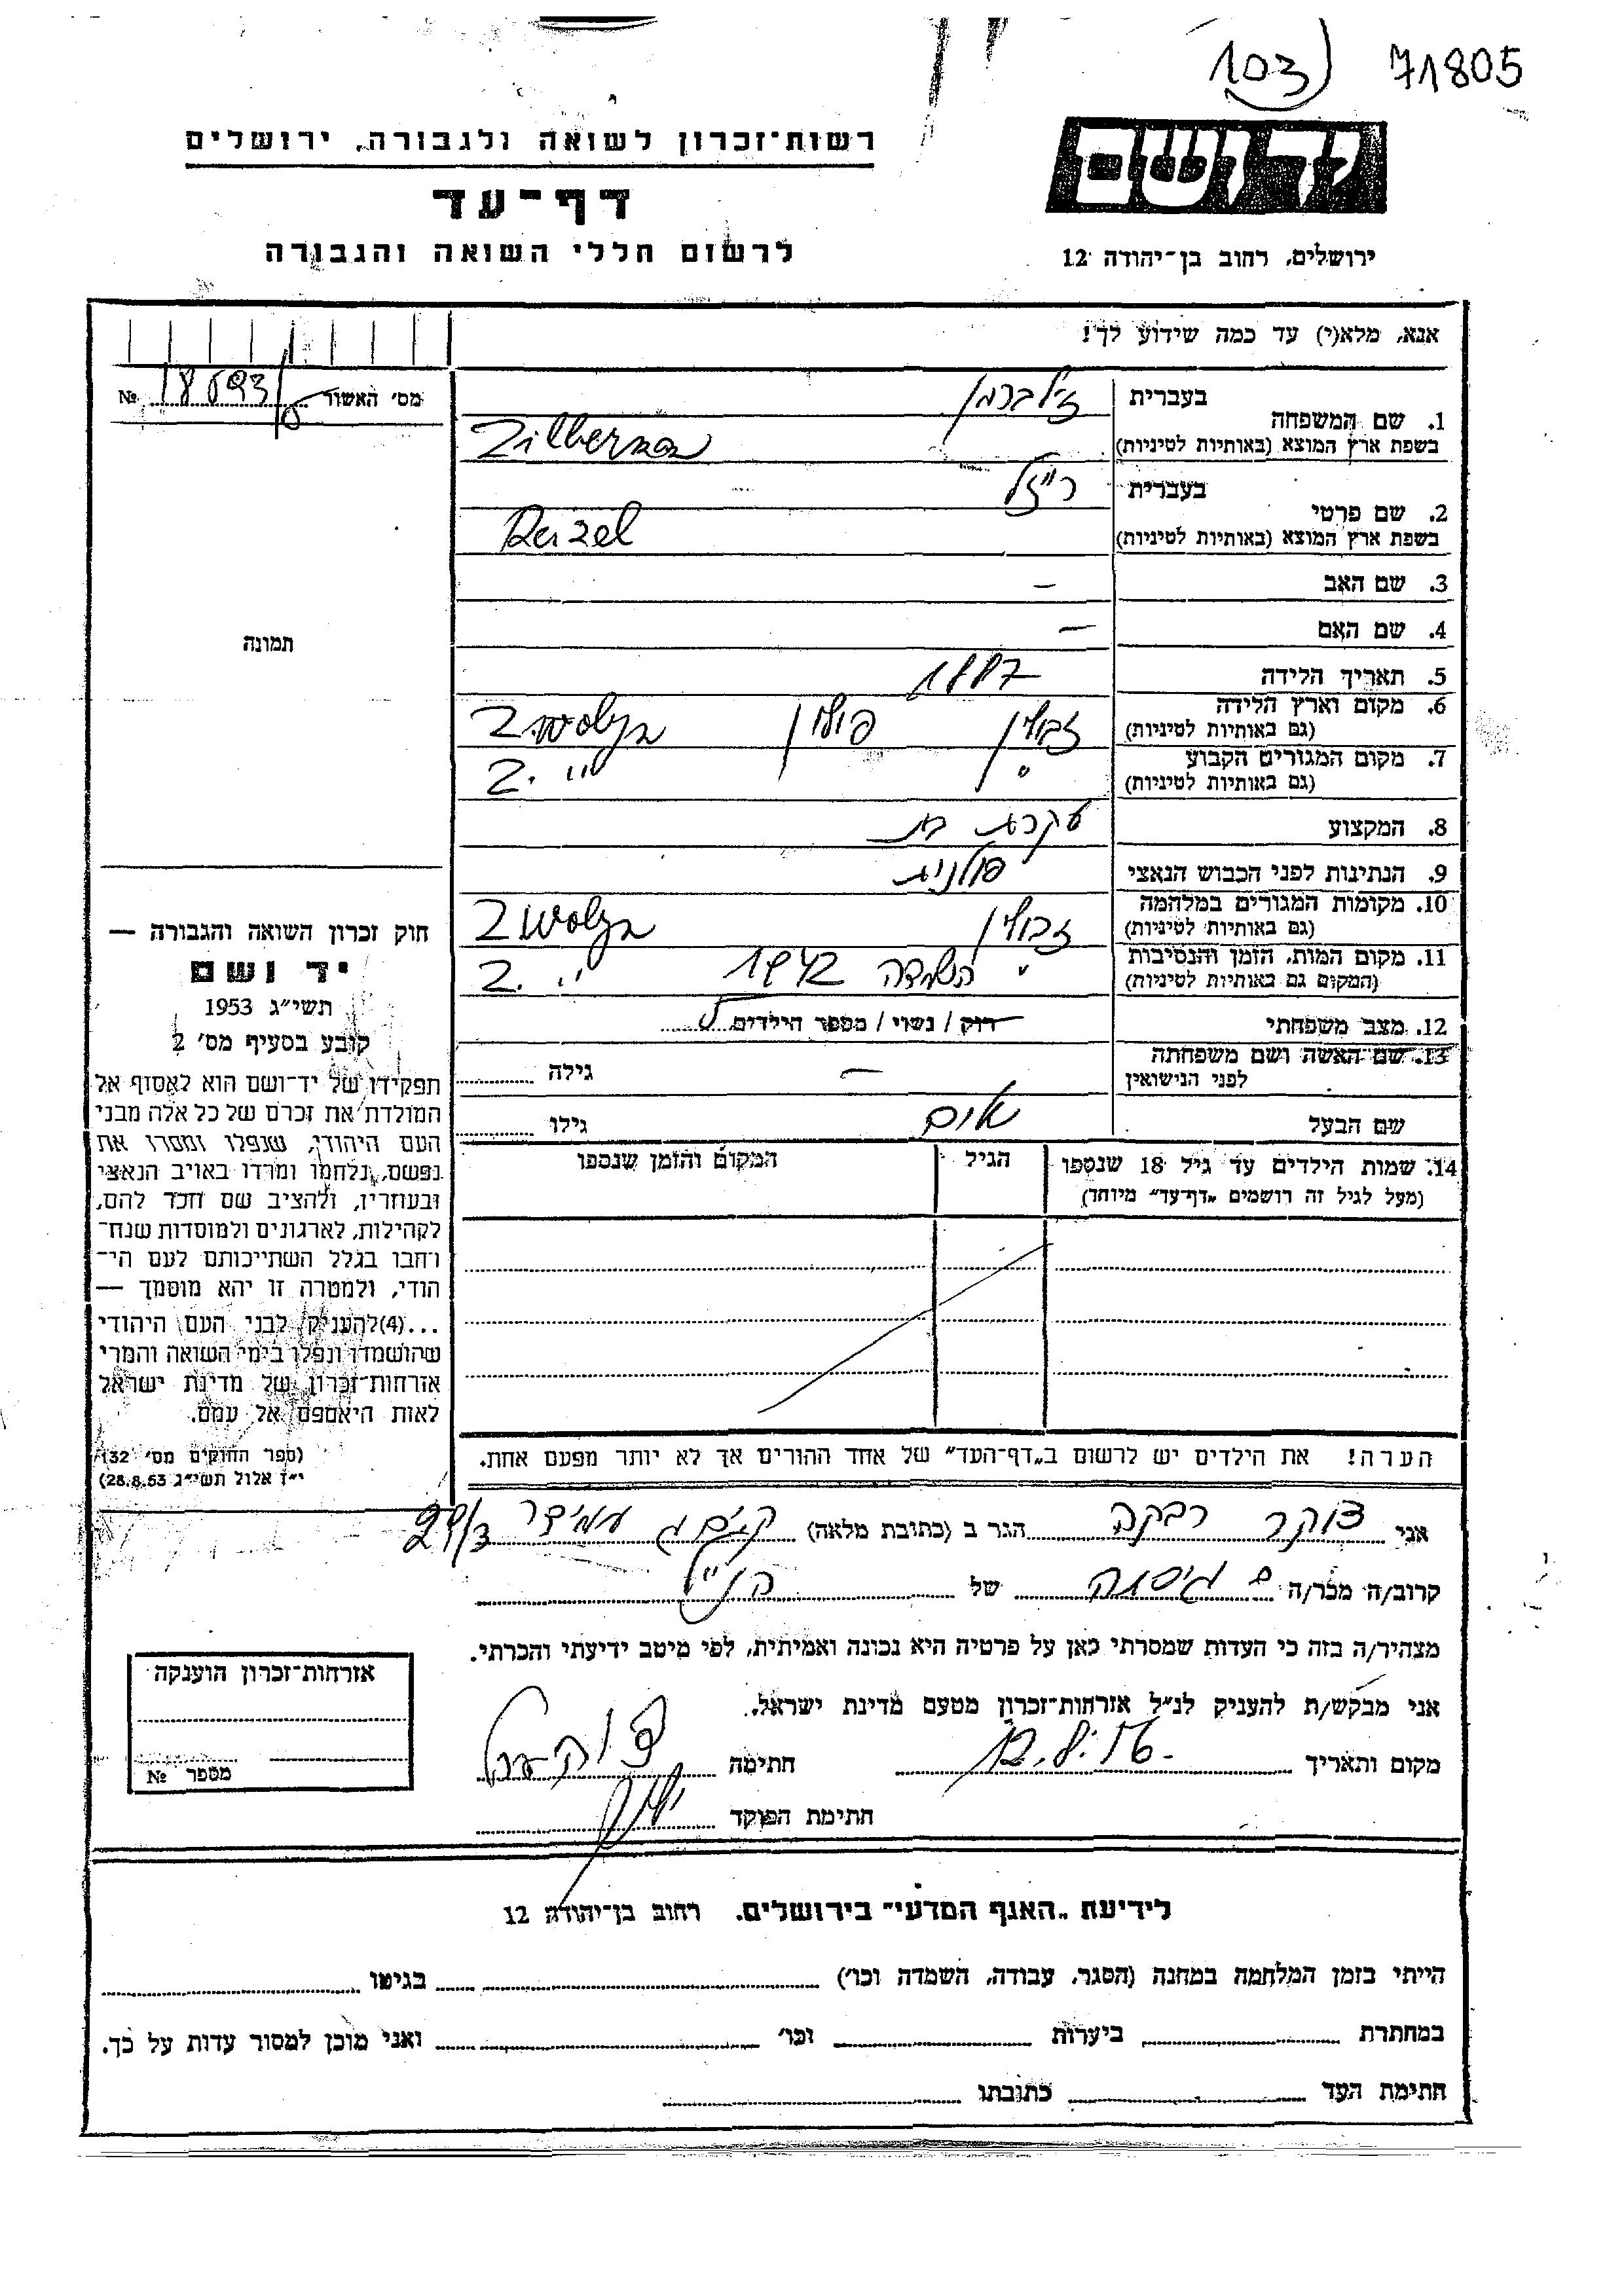 103) 71805
יד ושם
רשות־זכרון לשואה ולגבורה, ירושלים
דף־עד
לרשום חללי השואה והגבורה
ירושלים, רחוב בן־יהודה 12
אנא, מלא(י) עד כמה שידוע לך!
מס׳ האשור № 18693/
1. שם המשפחה בעברית זילברמן
בשפת ארץ המוצא (באותיות לטיניות) Zilberman
2. שם פרטי בעברית רייזל
בשפת ארץ המוצא (באותיות לטיניות) Reizel
3. שם האב –
4. שם האם –
תמונה
5. תאריך הלידה 1887
6. מקום וארץ הלידה (גם באותיות לטיניות) זבולין פולין Zwolyn
7. מקום המגורים הקבוע (גם באותיות לטיניות) " Z. "
8. המקצוע עקרת בית
9. הנתינות לפני הכבוש הנאצי פולנית
10. מקומות המגורים במלחמה (גם באותיות לטיניות) זבולין Zwolyn
11. מקום המות, הזמן והנסיבות (המקום גם באותיות לטיניות) " השמדה 1942 Z. "
12. מצב משפחתי רוק / נשוי / מספר הילדים 5
13. שם האשה ושם משפחתה לפני הנישואין – גילה
שם הבעל גילו
14. שמות הילדים עד גיל 18 שנספו (מעל לגיל זה רושמים „דף־עד״ מיוחד) הגיל המקום והזמן שנספו
הערה! את הילדים יש לרשום ב„דף־העד״ של אחד ההורים אך לא יותר מפעם אחת.
חוק זכרון השואה והגבורה —
יד ושם
תשי״ג 1953
קובע בסעיף מס׳ 2
תפקידו של יד־ושם הוא לאסוף אל
המולדת את זכרם של כל אלה מבני
העם היהודי, שנפלו ומסרו את
נפשם, נלחמו ומרדו באויב הנאצי
ובעוזריו, ולהציב שם וזכר להם,
לקהילות, לארגונים ולמוסדות שנח־
רחבו בגלל השתייכותם לעם הי־
הודי, ולמטרה זו יהא מוסמך —
...(4) להעניק לבני העם היהודי
שהושמדו ונפלו בימי השואה והמרי
אזרחות־זכרון של מדינת ישראל
לאות היאספם אל עמם.
(ספר החוקים מס׳ 132
י״ז אלול תשי״ג 28.8.53)
אני צוקר רבקה הגר ב (כתובת מלאה) עמידר 29/3
קרוב/ה מכר/ה גיסה של הנ״ל
מצהיר/ה בזה כי העדות שמסרתי כאן על פרטיה היא נכונה ואמיתית, לפי מיטב ידיעתי והכרתי.
אני מבקש/ת להעניק לנ״ל אזרחות־זכרון מטעם מדינת ישראל.
מקום ותאריך חתימה
חתימת הפוקד
אזרחות־זכרון הוענקה
מספר №
לידיעת „האגף המדעי״ בירושלים, רחוב בן־יהודה 12
הייתי בזמן המלחמה במחנה (הסגר, עבודה, השמדה וכו׳) בגיטו
במחתרת ביערות וכו׳ ואני מוכן למסור עדות על כך.
חתימת העד כתובתו